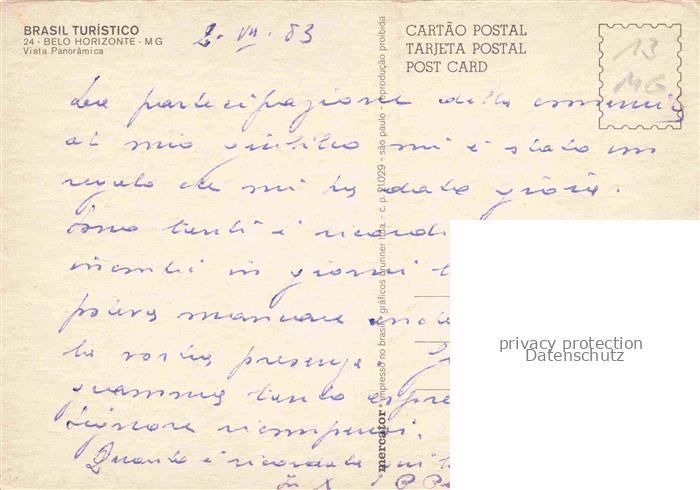 BRASIL TURÍSTICO
24 - BELO HORIZONTE - MG
Vista Panorâmica
2 - VII - 83
CARTÃO POSTAL
TARJETA POSTAL
POST CARD
13
MG
La partecipazione della comunità
al mio giubileo mi è stato un
regalo che mi ha dato gioia.
Sono tanti i ricordi
in giorni
poteva mancare anche
la vostra presenza.
tanto
Signore ricompensi.
Quanto è ricordata
In X P.
mercator impresso no brasil - gráficos brunner ltda. - c. p. 21029 - são paulo reprodução proibida
privacy protection
Datenschutz